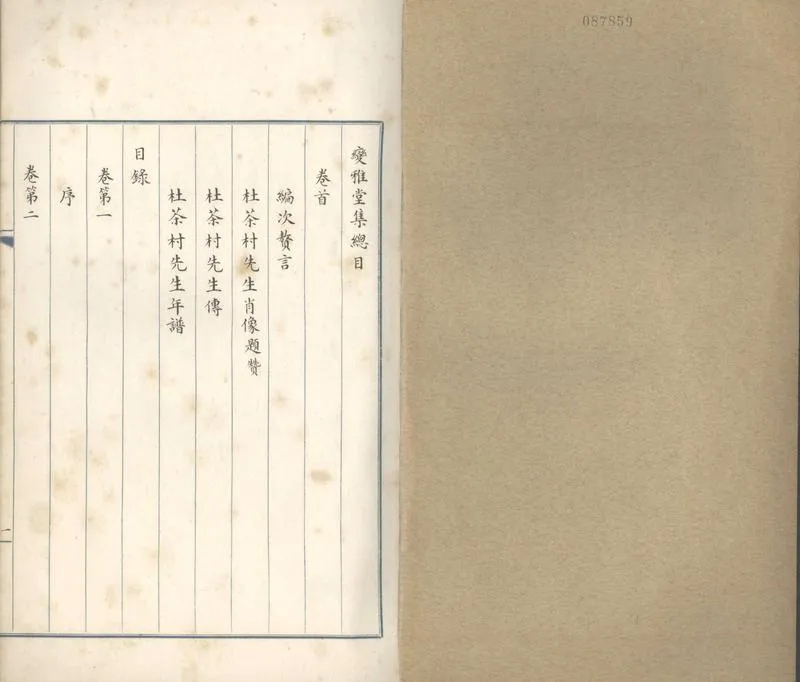 087859
變雅堂集總目
卷首
編次贅言
杜茶村先生肖像題贊
杜茶村先生傳
杜茶村先生年譜
目錄
卷第一
序
卷第二
一